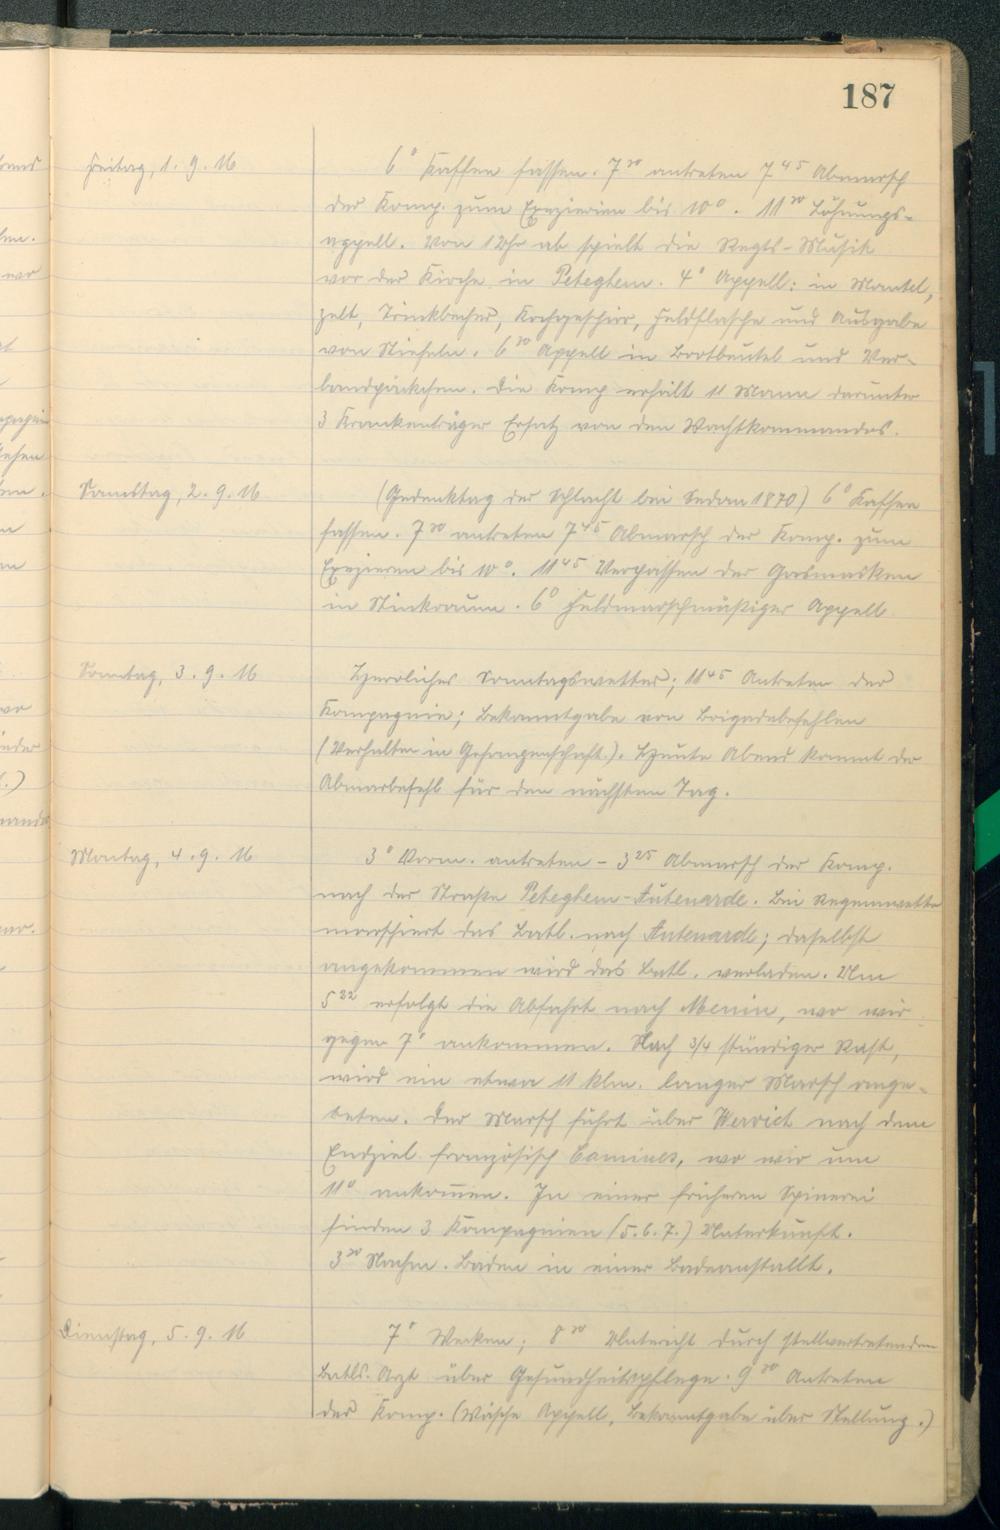 187
Freitag, 1. 9. 16
6° Kaffee fassen. 7³⁰ antreten 7⁴⁵ Abmarsch
der Komp. zum Exezieren bis 10°. 11³⁰ Löhnungs-
appell. Von 1 Uhr ab spielt die Regts-Musik
vor der Kirche in Peteghem. 4° Appell: in Mantel,
zelt, Trinkbecher, Kochgeschirr, Feldflasche und Ausgabe
von Stiefeln. 6³⁰ Appell in Brotbeutel und Ver-
bandpäckchen. Die Komp erhält 11 Mann darunter
3 Krankenträger Ersatz von den Wachtkommandos.
Samstag, 2. 9. 16
(Gedenktag der Schlacht bei Sedan 1870) 6° Kaffee
fassen. 7³⁰ antreten 7⁴⁵ Abmarsch der Komp. zum
Exezieren bis 10°. 11⁴⁵ Verpassen der Gasmasken
in Stinkraum. 6° Feldmarschmäßiger Appell
Sonntag, 3. 9. 16
Herrliches Sonntagswetter; 11⁴⁵ Antreten der
Kompagnie; Bekanntgabe von Brigadebefehlen
(Verhalten in Gefangenschaft). Heute Abend kommt der
Abmarbefehl für den nächsten Tag.
Montag, 4. 9. 16
3° Vorm. antreten - 3²⁵ Abmarsch der Komp.
nach der Straße Peteghem-Autenarde. Bei Regenwetter
marschiert das Batl. nach Autenarde; daselbst
angekommen wird das Batl. verladen. Um
5²² erfolgt die Abfahrt nach Menin, wo wir
gegen 7° ankommen. Nach 3/4 stündiger Rast,
wird ein etwa 11 klm. langer Marsch ange-
treten. Der Marsch führt über Wervict nach dem
Endziel französisch Camines, wo wir um
11° ankom̅en. In einer früheren Spinerei
finden 3 Kompagnien (5. 6. 7.) Unterkunft.
3³⁰ Nachm. Baden in einer Badeanstallt.
Dienstag, 5. 9. 16
7° Wecken; 8³⁰ Unterricht durch stellvertretenden
Batls. Arzt über Gesundheitspflege. 9³⁰ Antreten
der Komp. (Wäsche Appell, Bekanntgabe über Stellung.)